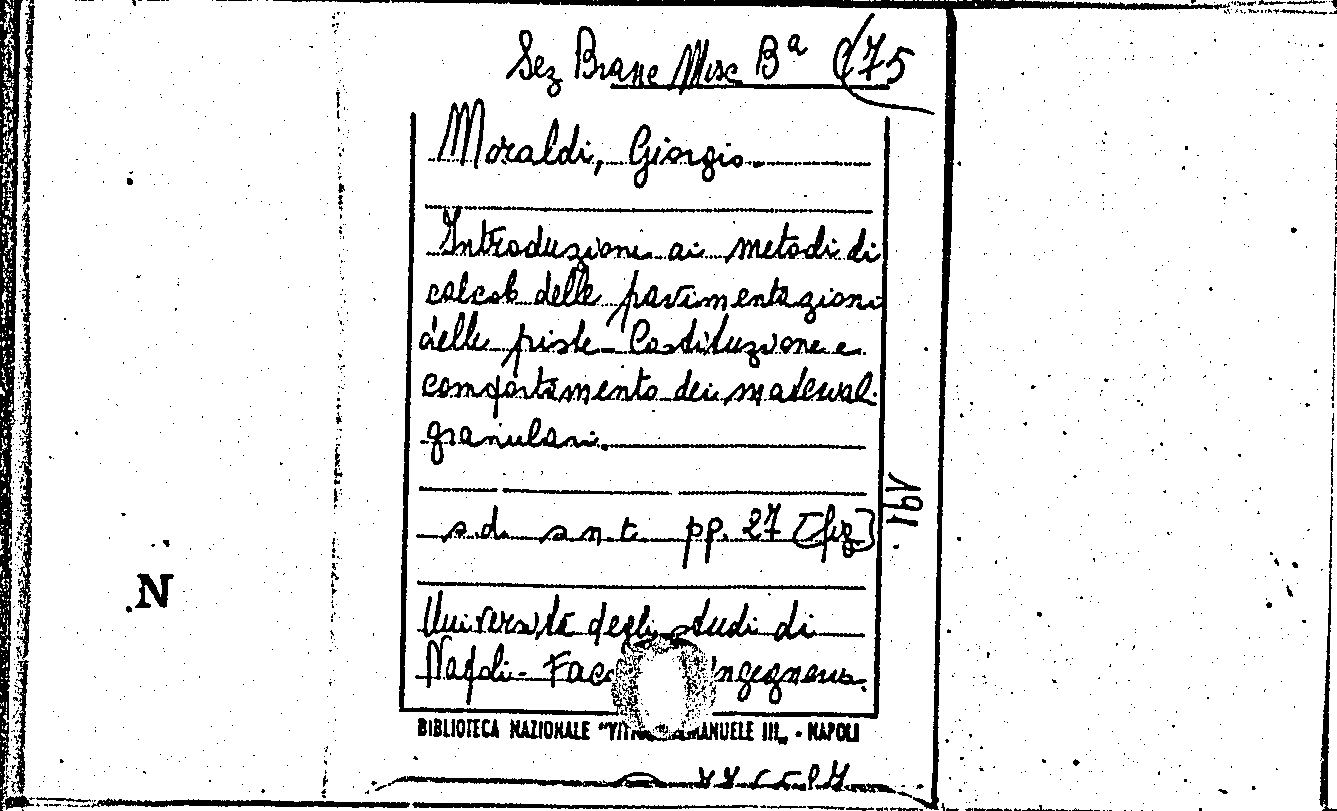 Sez Branc Misc Bª 175
Moraldi, Giorgio.
Introduzione ai metodi di
calcolo delle pavimentazioni
delle piste - Costituzione e
comportamento dei material.
granulari.
s.d. s.n.t. pp. 27 [fig]
Università degli studi di
Napoli - Fac ngegneria.
BIBLIOTECA NAZIONALE "VITT EMANUELE III„ - NAPOLI
N